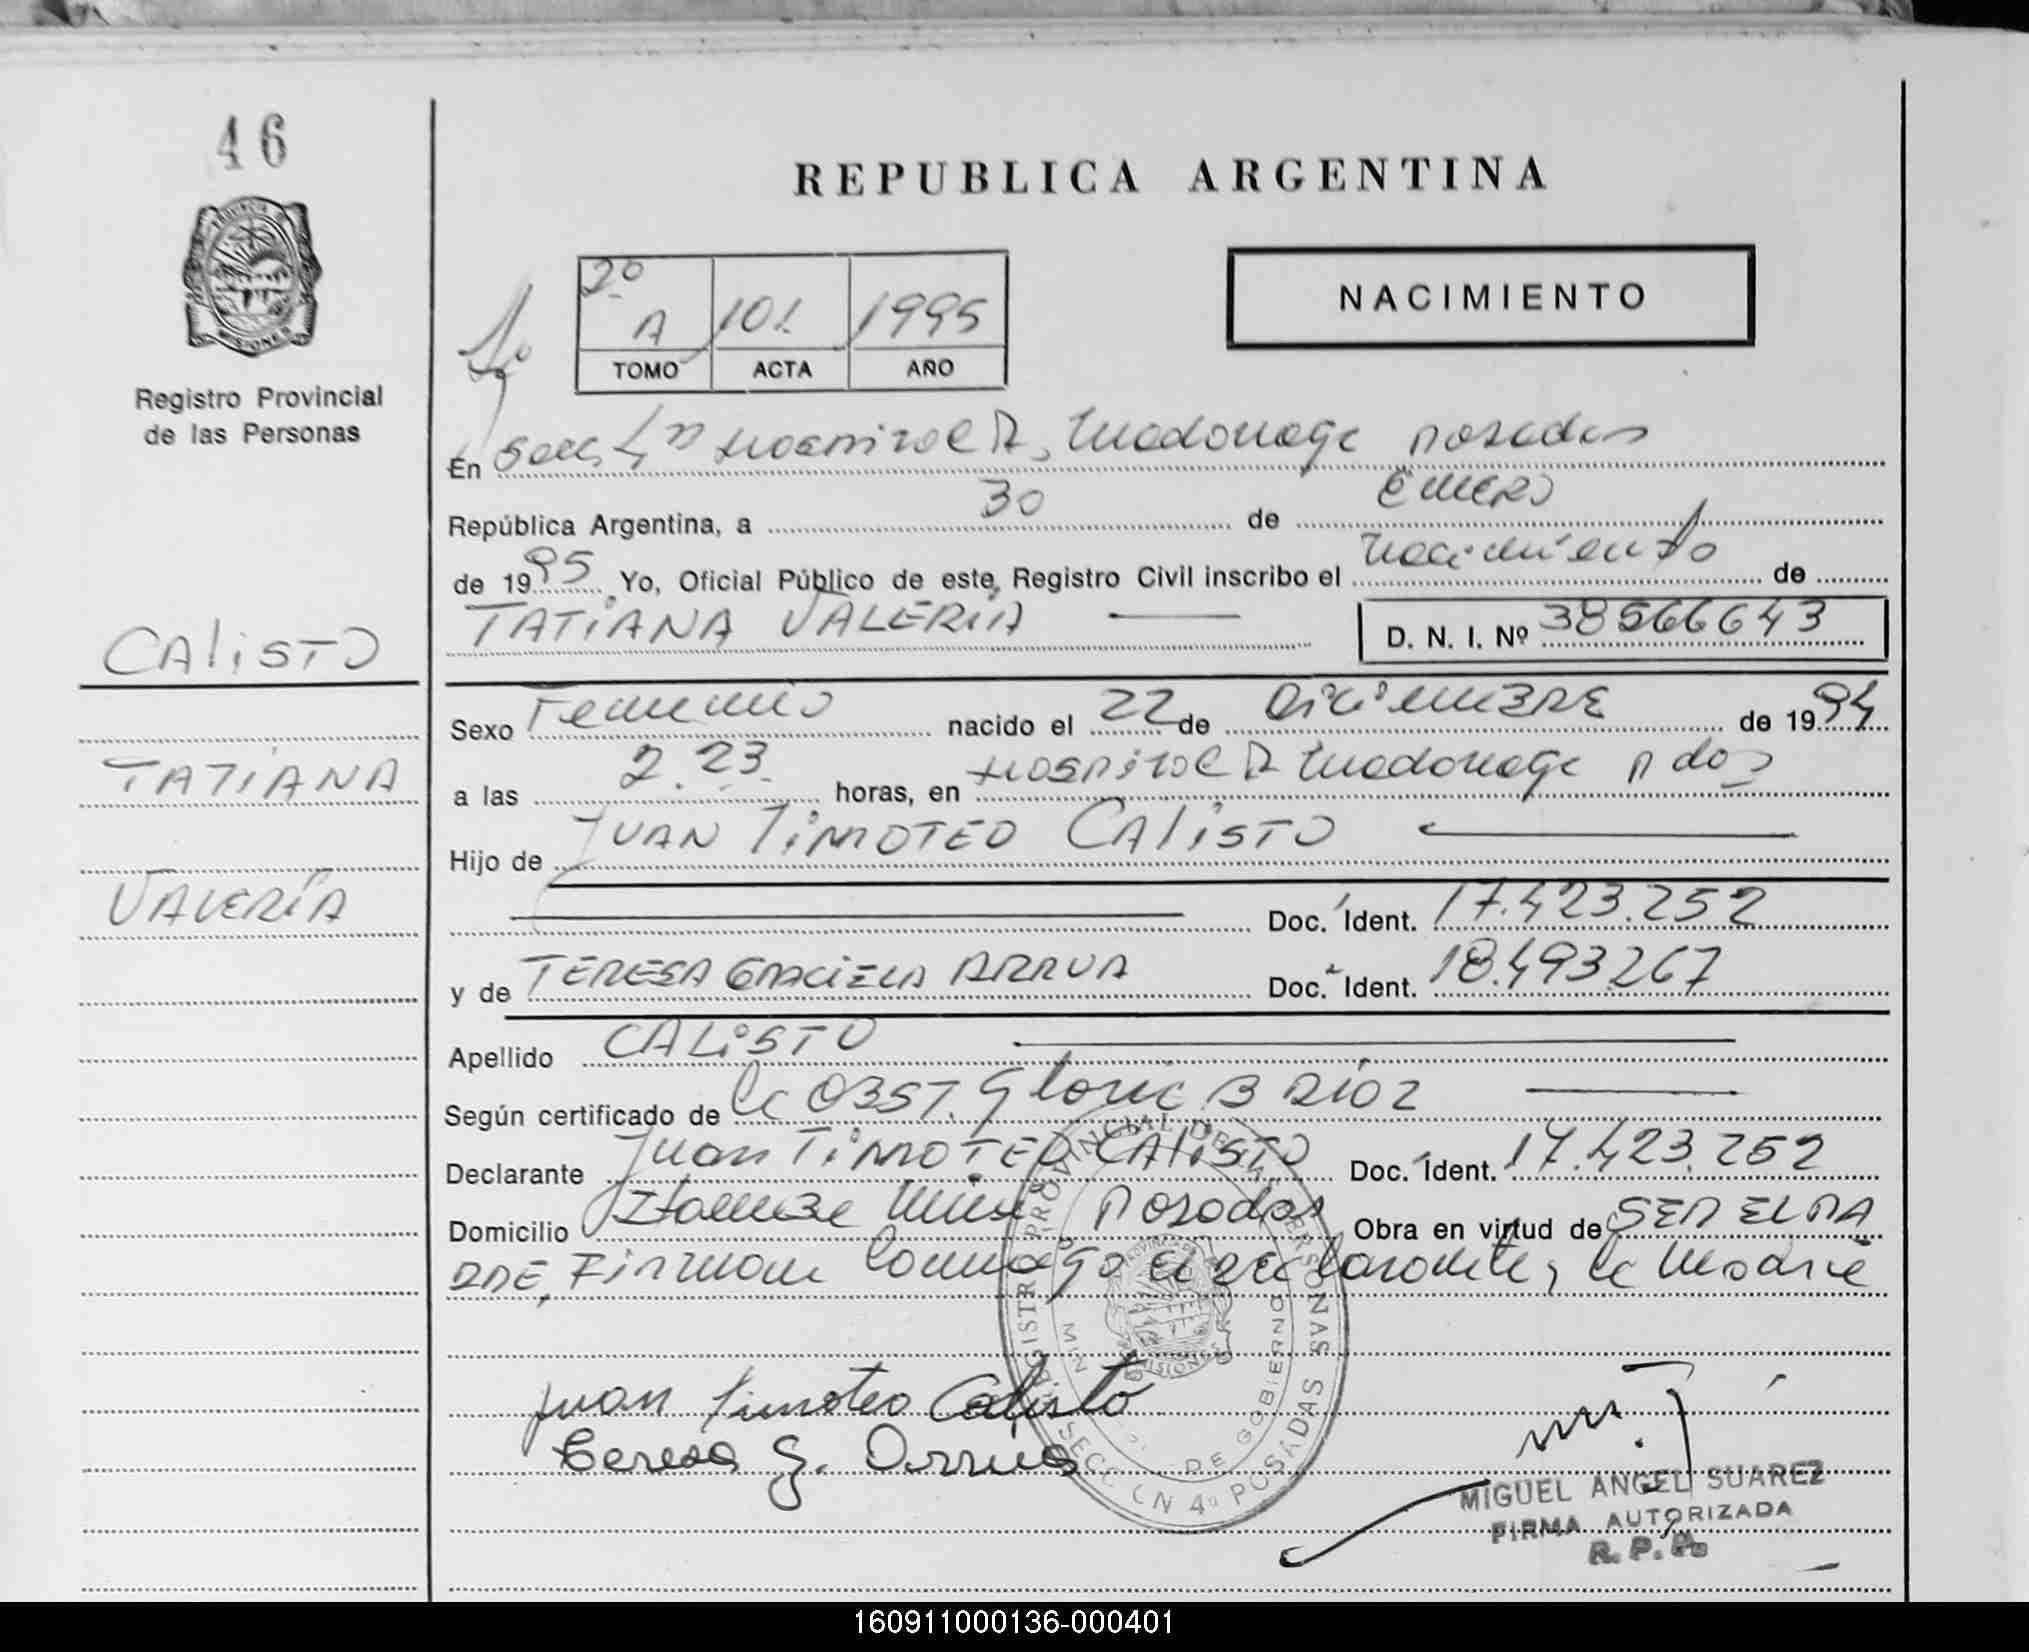 46
REPUBLICA ARGENTINA
PROVINCIA DE
MISIONES
Registro Provincial
de las Personas
2º
A 101 1995
TOMO ACTA AÑO
NACIMIENTO
En Secc 4ª Hospital R. Madariaga Posadas
República Argentina, a 30 de ENERO
de 1995 Yo, Oficial Público de este Registro Civil inscribo el nacimiento de
TATIANA VALERIA D. N. I. Nº 38566643
CALISTO
TATIANA
VALERIA
Sexo Femenino nacido el 22 de DiciEMBRE de 1994
a las 2.23 horas, en Hospital R Madariaga Pdas
Hijo de JUAN TiMOTEO CALiSTO
Doc. Ident. 17.423.252
y de TERESA GRACIELA ARRUA Doc. Ident. 18.493.267
Apellido CALiSTO
Según certificado de la OBST. Gloria B Díaz
Declarante Juan TiMOTEO CALiSTO Doc. Ident. 17.423.252
Domicilio Posadas Obra en virtud de SER EL PA
DRE, Firman Conmigo el declarante y la Madre
Juan Timoteo Calisto
Teresa G. Arrúa
REGISTRO PROVINCIAL DE LAS PERSONAS
MIN. DE GOBIERNO
SECCION 4ª POSADAS
MIGUEL ANGEL SUAREZ
FIRMA AUTORIZADA
R. P. P.
160911000136-000401